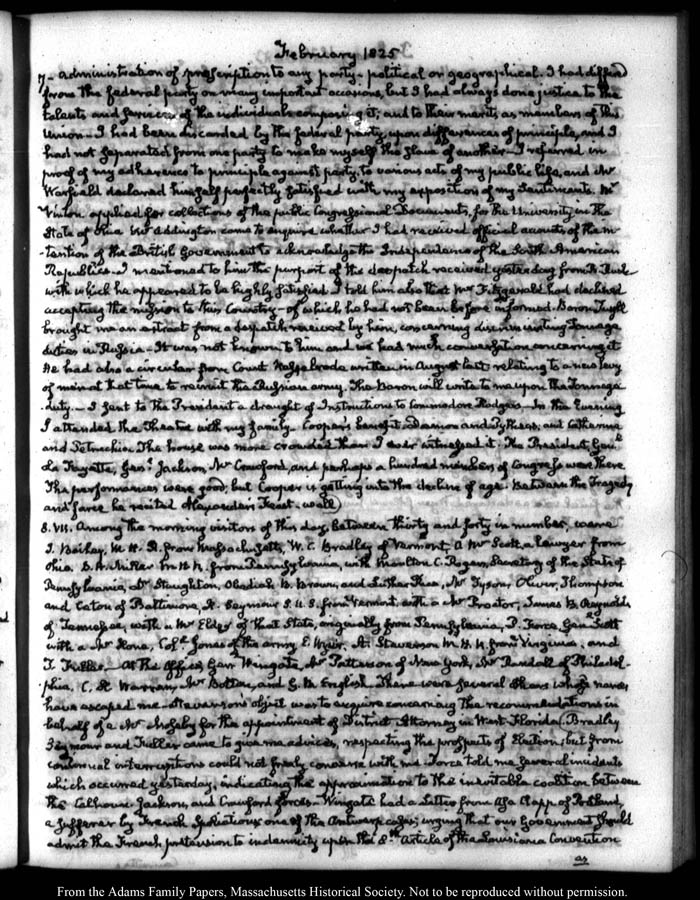 February 1825
7- administration of proscription to any party- political or geographical. I had differed
from the federal party on many important occasions, but I had always done justice to the
talents and services of the individuals composing it, and to their merits as members of this
Union- I had been discarded by the federal party, upon differences of principle, and I
had not separated from one party to make myself the slave of another- I referred in
proof of my adherence to principle against party, to various acts of my public life, and Mr
Warfield declared himself perfectly satisfied with my exposition of my sentiments. Mr
Vinton applied for collections of the public Congressional Documents, for the University in the
State of Ohio Mr Addington came to enquire whether I had received official accounts of the in-
-tention of the British Government to acknowledge the Independence of the South American
Republics- I mentioned to him the purport of the despatch received yesterday from R. Rush
with which he appeared to be highly satisfied I told him also that Mr Fitzgerald had declined
accepting the mission to this Country- of which he had not been before informed. Baron Tuyll
brought me an extract from a despatch received by him, concerning discriminating Tonnage
duties in Russia- It was not known to him and we had much conversation concerning it
He had also a circular from Count Nesselrode written in August last relating to a new levy
of men at that time to recruit the Russian army. The Baron will write to me upon the Tonnage
duty.- I sent to the President a draught of Instructions to Commodore Rodgers- In the Evening
I attended the Theatre with my family Cooper's benefit. Damon and Pythias, and Catherine
and Petruchio. The house was more crowded than I ever witnessed it. The President, Genl
La Fayette, Genl Jackson, Mr Crawford, and perhaps a hundred members of Congress were there
The performances were good, but Cooper is getting into the decline of age. Between the Tragedy
and farce he recited Alexander's Feast. well)
8. VII. Among the morning visitors of this day, between thirty and forty in number, were
J. Bailey, M. H. R. from Massachusetts, W. C. Bradley of Vermont, A Mr Scott, a lawyer from
Ohio. M H R. from Pennsylvania, with Molton C. Rogers, Secretary of the State of
Pennsylvania, Dr Staughton, Obadiah B. Brown, and Luther Rice, Mr Tyson, Oliver, Thompson
and Eaton of Baltimore, H. Seymour S. U. S. from Vermont, with a Mr Proctor, James B. Reynolds
of Tennessee, with a Mr Elder of that State, originally from Pennsylvania, P. Force, Genl Scott
with a Mr Coll Jones of the army, E. Wyer, A. Stevenson M. H. R from Virginia, and
T. Fuller- At the Office, Genl Wingate, Mr Patterson of New York, Mr Randall of Philadel-
-phia, C. K Warner, Mr Bolton, and G. B. English. There were several others whose names
have escaped me- Stevenson's object was to enquire concerning the recommendations in
behalf of a Mr for the appointment of District Attorney in West-Florida. Bradley
Seymour and Fuller came to give me advices, respecting the prospects of Election, but from
continual interruptions could not freely converse with me. Force told me several incidents
which occurred yesterday, indicating the approximation to the inevitable coalition between
the Calhoun Jackson, and Crawford forces- Wingate had a Letter from Asa Clapp of Portland,
a sufferer by French Spoliations one of the Antwerp cases, urging that our Government should
admit the French pretension to indemnity upon the 8th Article of the Louisiana Convention
as
From the Adams Family Papers, Massachusetts Historical Society. Not to be reproduced without permission.